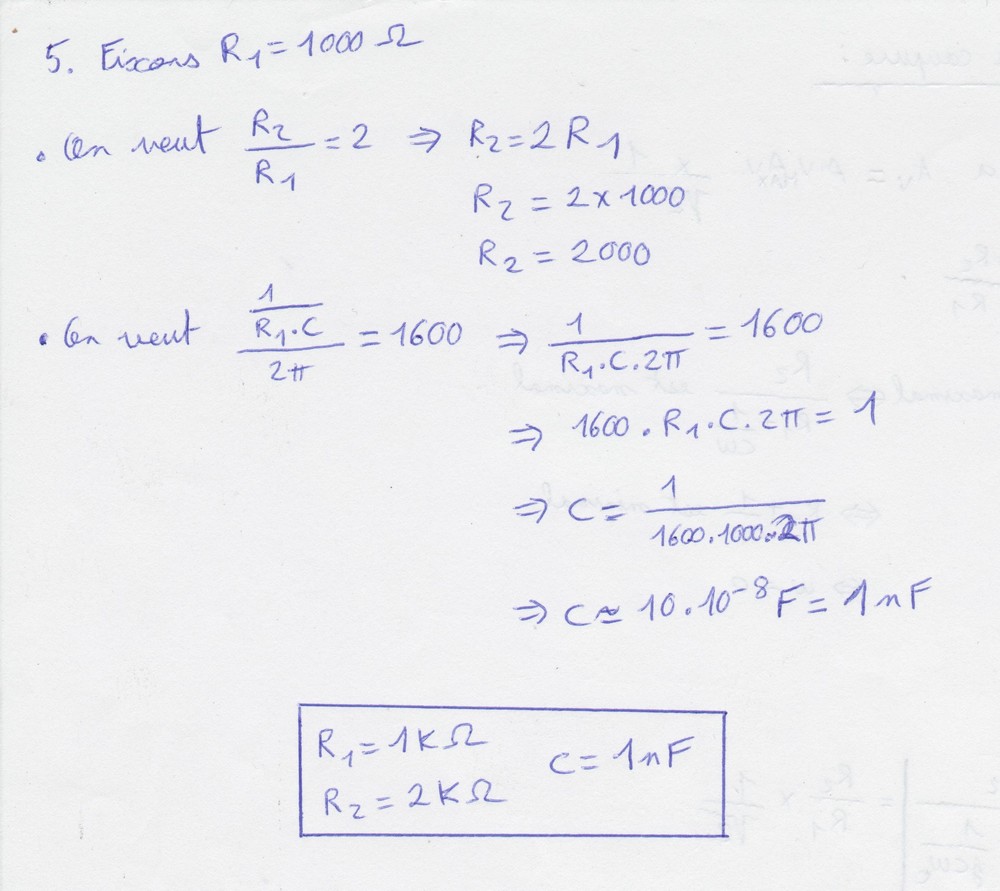 5. Fixons R1 = 1000 Ω
• On veut R2/R1 = 2 ⇒ R2 = 2 R1
R2 = 2 x 1000
R2 = 2000
• On veut (1/(R1.C))/2π = 1600 ⇒ 1/(R1.C.2π) = 1600
⇒ 1600.R1.C.2π = 1
⇒ C = 1/(1600.1000.2π)
⇒ C ≃ 10.10^-8 F = 1nF
R1 = 1KΩ C = 1nF
R2 = 2KΩ